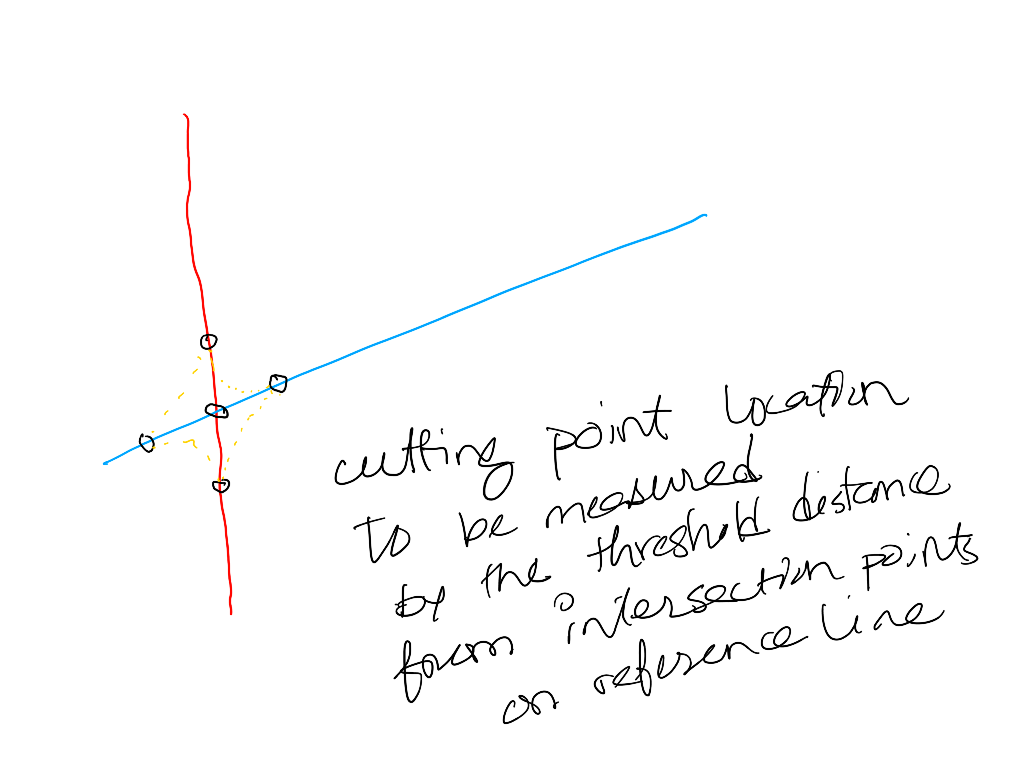 cutting point location
to be measured
by the threshold distance
from intersection points
on reference line